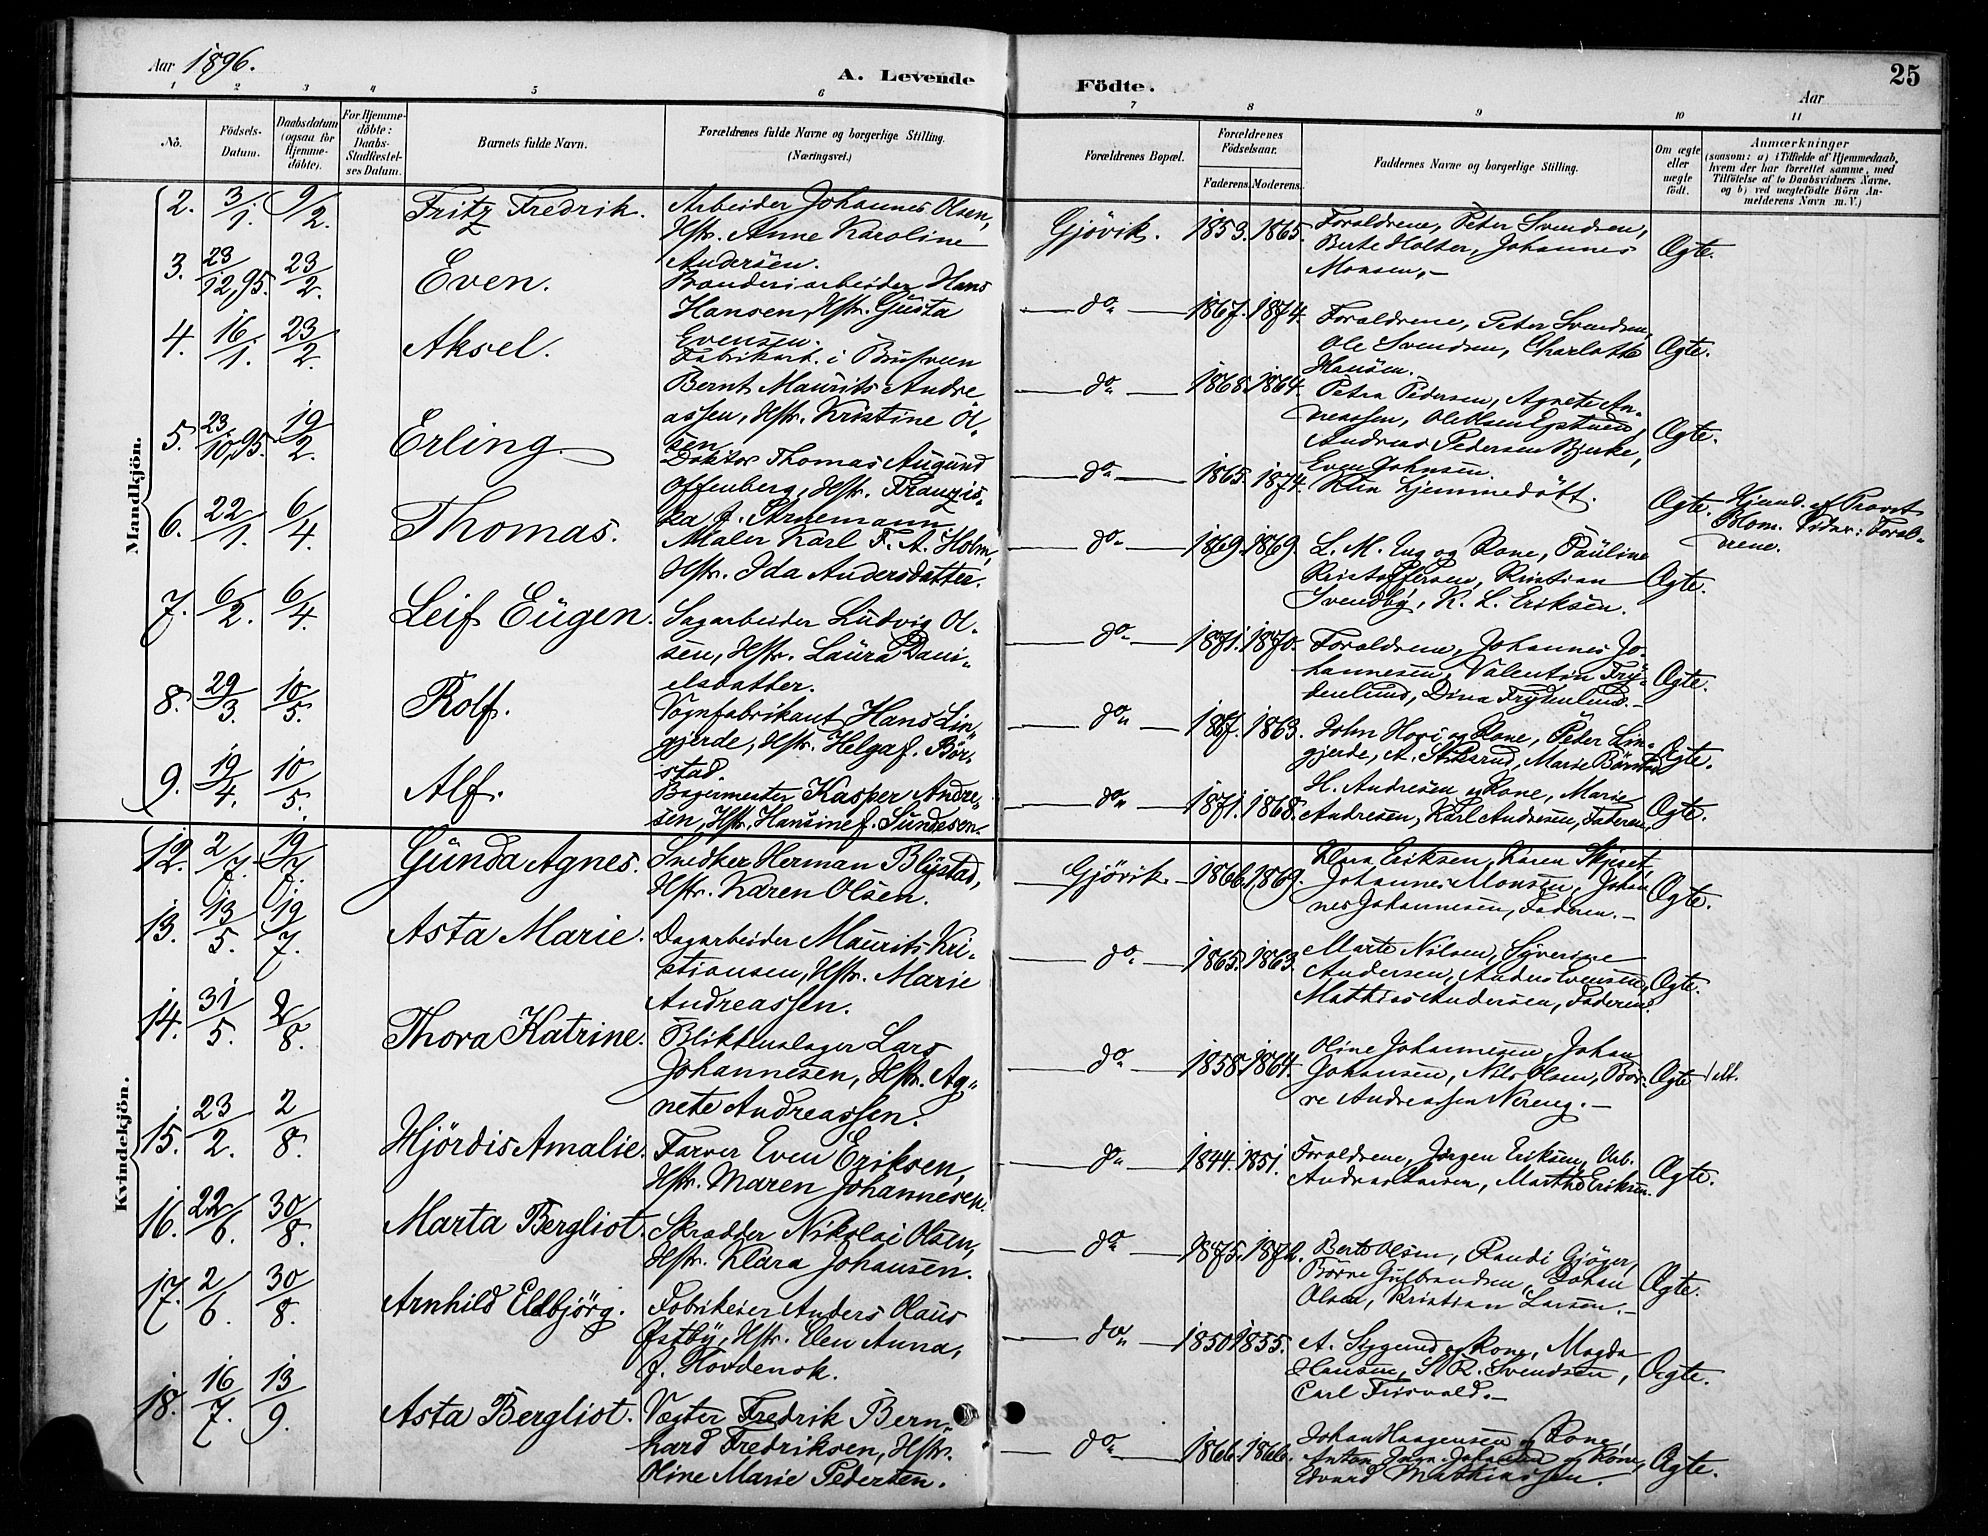 Aar 1896.
A. Levende Födte.
25
Aar
1 2 3 4 5 6 7 8 9 10 11
No.
Födsels-
Datum.
Daabsdatum
(ogsaa for
Hjemme-
döbte).
For Hjemme-
döbte:
Daabs-
Stadfæstel-
ses Datum.
Barnets fulde Navn.
Forældrenes fulde Navne og borgerlige Stilling.
(Næringsvei.)
Forældrenes Bopæl.
Forældrenes
Födselsaar.
Faderens. Moderens.
Faddernes Navne og borgerlige Stilling.
Om ægte
eller
uægte
födt.
Anmærkninger
(saasom: a) i Tilfælde af Hjemmedaab,
hvem der har forrettet samme, med
Tilföielse af to Daabsvidners Navne,
og b) ved uægtefödte Börn An-
melderens Navn m. V.)
Mandkjön.
2. 3/1. 9/2. Fritz Fredrik. Arbeider Johannes Olsen,
Hstr. Anne Karoline
Andersen.
Gjövik. 1853. 1865. Forældrene, Peter Svendsen,
Berte Holter, Johannes
Monsen.-
Ægte.
3. 23/12,95. 23/2. Even. Brænderiarbeider Hans
Hansen, Hstr. Gusta
Evensen.
do 1867. 1874. Forældrene, Peter Svendsen,
Ole Svendsen, Charlotte
Hansen.
Ægte.
4. 16/1. 23/2. Aksel. Fabrikarb. i Brusveen
Bernt Maurits Andre
assen, Hstr. Kristine Ol-
sen.
do 1868. 1864. Petra Pedersen, Agnete An-
dreassen, Ole Olsen
Andreas Pedersen Bjerke,
Even Johnsen.
Ægte.
5. 23/10,95. 19/2. Erling. Doktor Thomas Augund
Offenberg, Hstr. Franzis-
ka f. Arnemann.
do 1865. 1874. Kun hjemmedöbt.
Ægte. Hjemd. af Provst
Blom. Vidner: Foræl-
drene.
6. 22/1. 6/4. Thomas. Maler Karl F. A. Holm,
Hstr. Ida Andersdatter.
do 1869. 1869. L. M. Eng og Kone, Pauline
Kristoffersen, Kristian
Svendby, K. L. Eriksen.
Ægte.
7. 6/2. 6/4. Leif Eugen. Sagarbeider Ludvig Ol-
sen, Hstr. Laura Dani-
elsdatter.
do 1871. 1870. Forældrene, Johannes Jo-
hannesen, Valentin Fry-
denlund, Dina Frydenlund.-
Ægte.
8. 29/3. 10/5. Rolf. Vognfabrikant Hans Lin-
gjerde, Hstr. Helga f. Bör-
stad.
do 1867. 1863. John Hovi og Kone, Peder Lin-
gjerde, A. Stiksrud, Marie Börstad
Ægte.
9. 19/4. 10/5. Alf. Bagermester Kasper Andre-
sen, Hstr. Hansine f. Sundeson.
do 1871. 1868. H. Andresen og Kone, Marie
Andresen, Karl Andresen, Faderen.
Ægte.
Kvindekjön.
12. 2/7. 19/7. Gunda Agnes. Snedker Herman Blystad,
Hstr. Karen Olsen.
Gjövik 1866. 1869. Klara Eriksen, Karen Skjeset,
Johannes Monsen, Johan
nes Johannesen, Faderen.-
Ægte.
13. 13/5. 19/7. Asta Marie. Dagarbeider Maurits Kri-
stiansen, Hstr. Marie
Andreassen.
do 1865. 1863. Marte Nilsen, Syverine
Andersen, Anders Evensen,
Mathias Andersen, Faderen.
Ægte.
14. 31/5. 2/8. Thora Katrine. Blikkenslager Lars
Johannesen, Hstr. Ag-
nete Andreassen.
do 1858. 1864. Oline Johannesen, Johan
Johansen, Nils Olsen, Bör-
re Andreassen Nereng.-
Ægte
15. 23/2. 2/8. Hjördis Amalie. Farver Even Eriksen,
Hstr. Maren Johannesen.
do 1844. 1851. Forældrene, Jörgen Eriksen, Arb.
Andreas Larsen, Marthe Eriksen.
Ægte.
16. 22/6. 30/8. Marta Bergliot. Skrædder Nikolai Olsen,
Hstr. Klara Johansen.
do 1875. 1872. Berte Olsen, Randi Gjöger,
Börne Gulbrandsen, Johan
Olsen, Kristian Larsen.-
Ægte.
17. 2/6. 30/8. Arnhild Eldbjörg. Fabrikeier Anders Olaus
Östby, Hstr. Elen Anna,
f. Hovdenok.
do 1850 1855. A. Sygund og Kone, Magda
Hansen, S. R. Svendsen,
Carl Tiisvold.-
Ægte.
18. 16/7. 13/9. Asta Bergliot. Vægter Fredrik Bern-
hard Fredriksen, Hstr.
Oline Marie Pedersen.
do 1866. 1866. Johan Haagensen og Kone,
Anton Johansen og Kone,
Edvard Mathiassen.
Ægte.